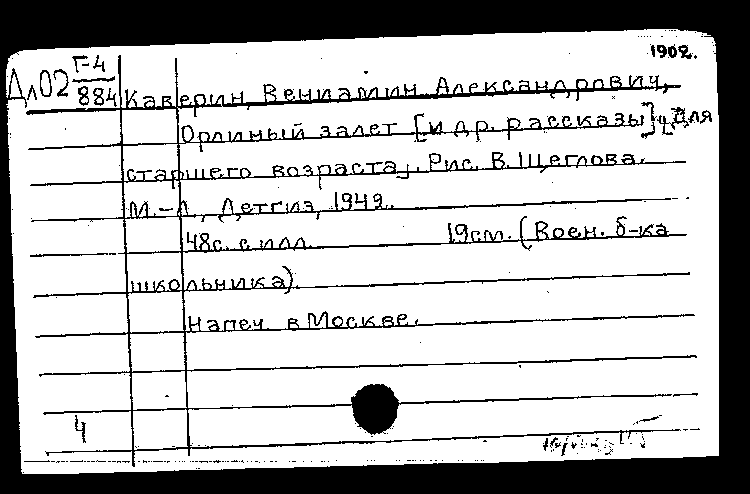 1902.
Дл02 Г-4
884
Каверин, Вениамин Александрович,
Орлиный залет [и др. рассказы] [Для
старшего возраста]. Рис. В. Щеглова.
М.-Л, Детгиз, 1942.
48с. с илл. 19см. (Воен. б-ка
школьника).
Напеч. в Москве.
4